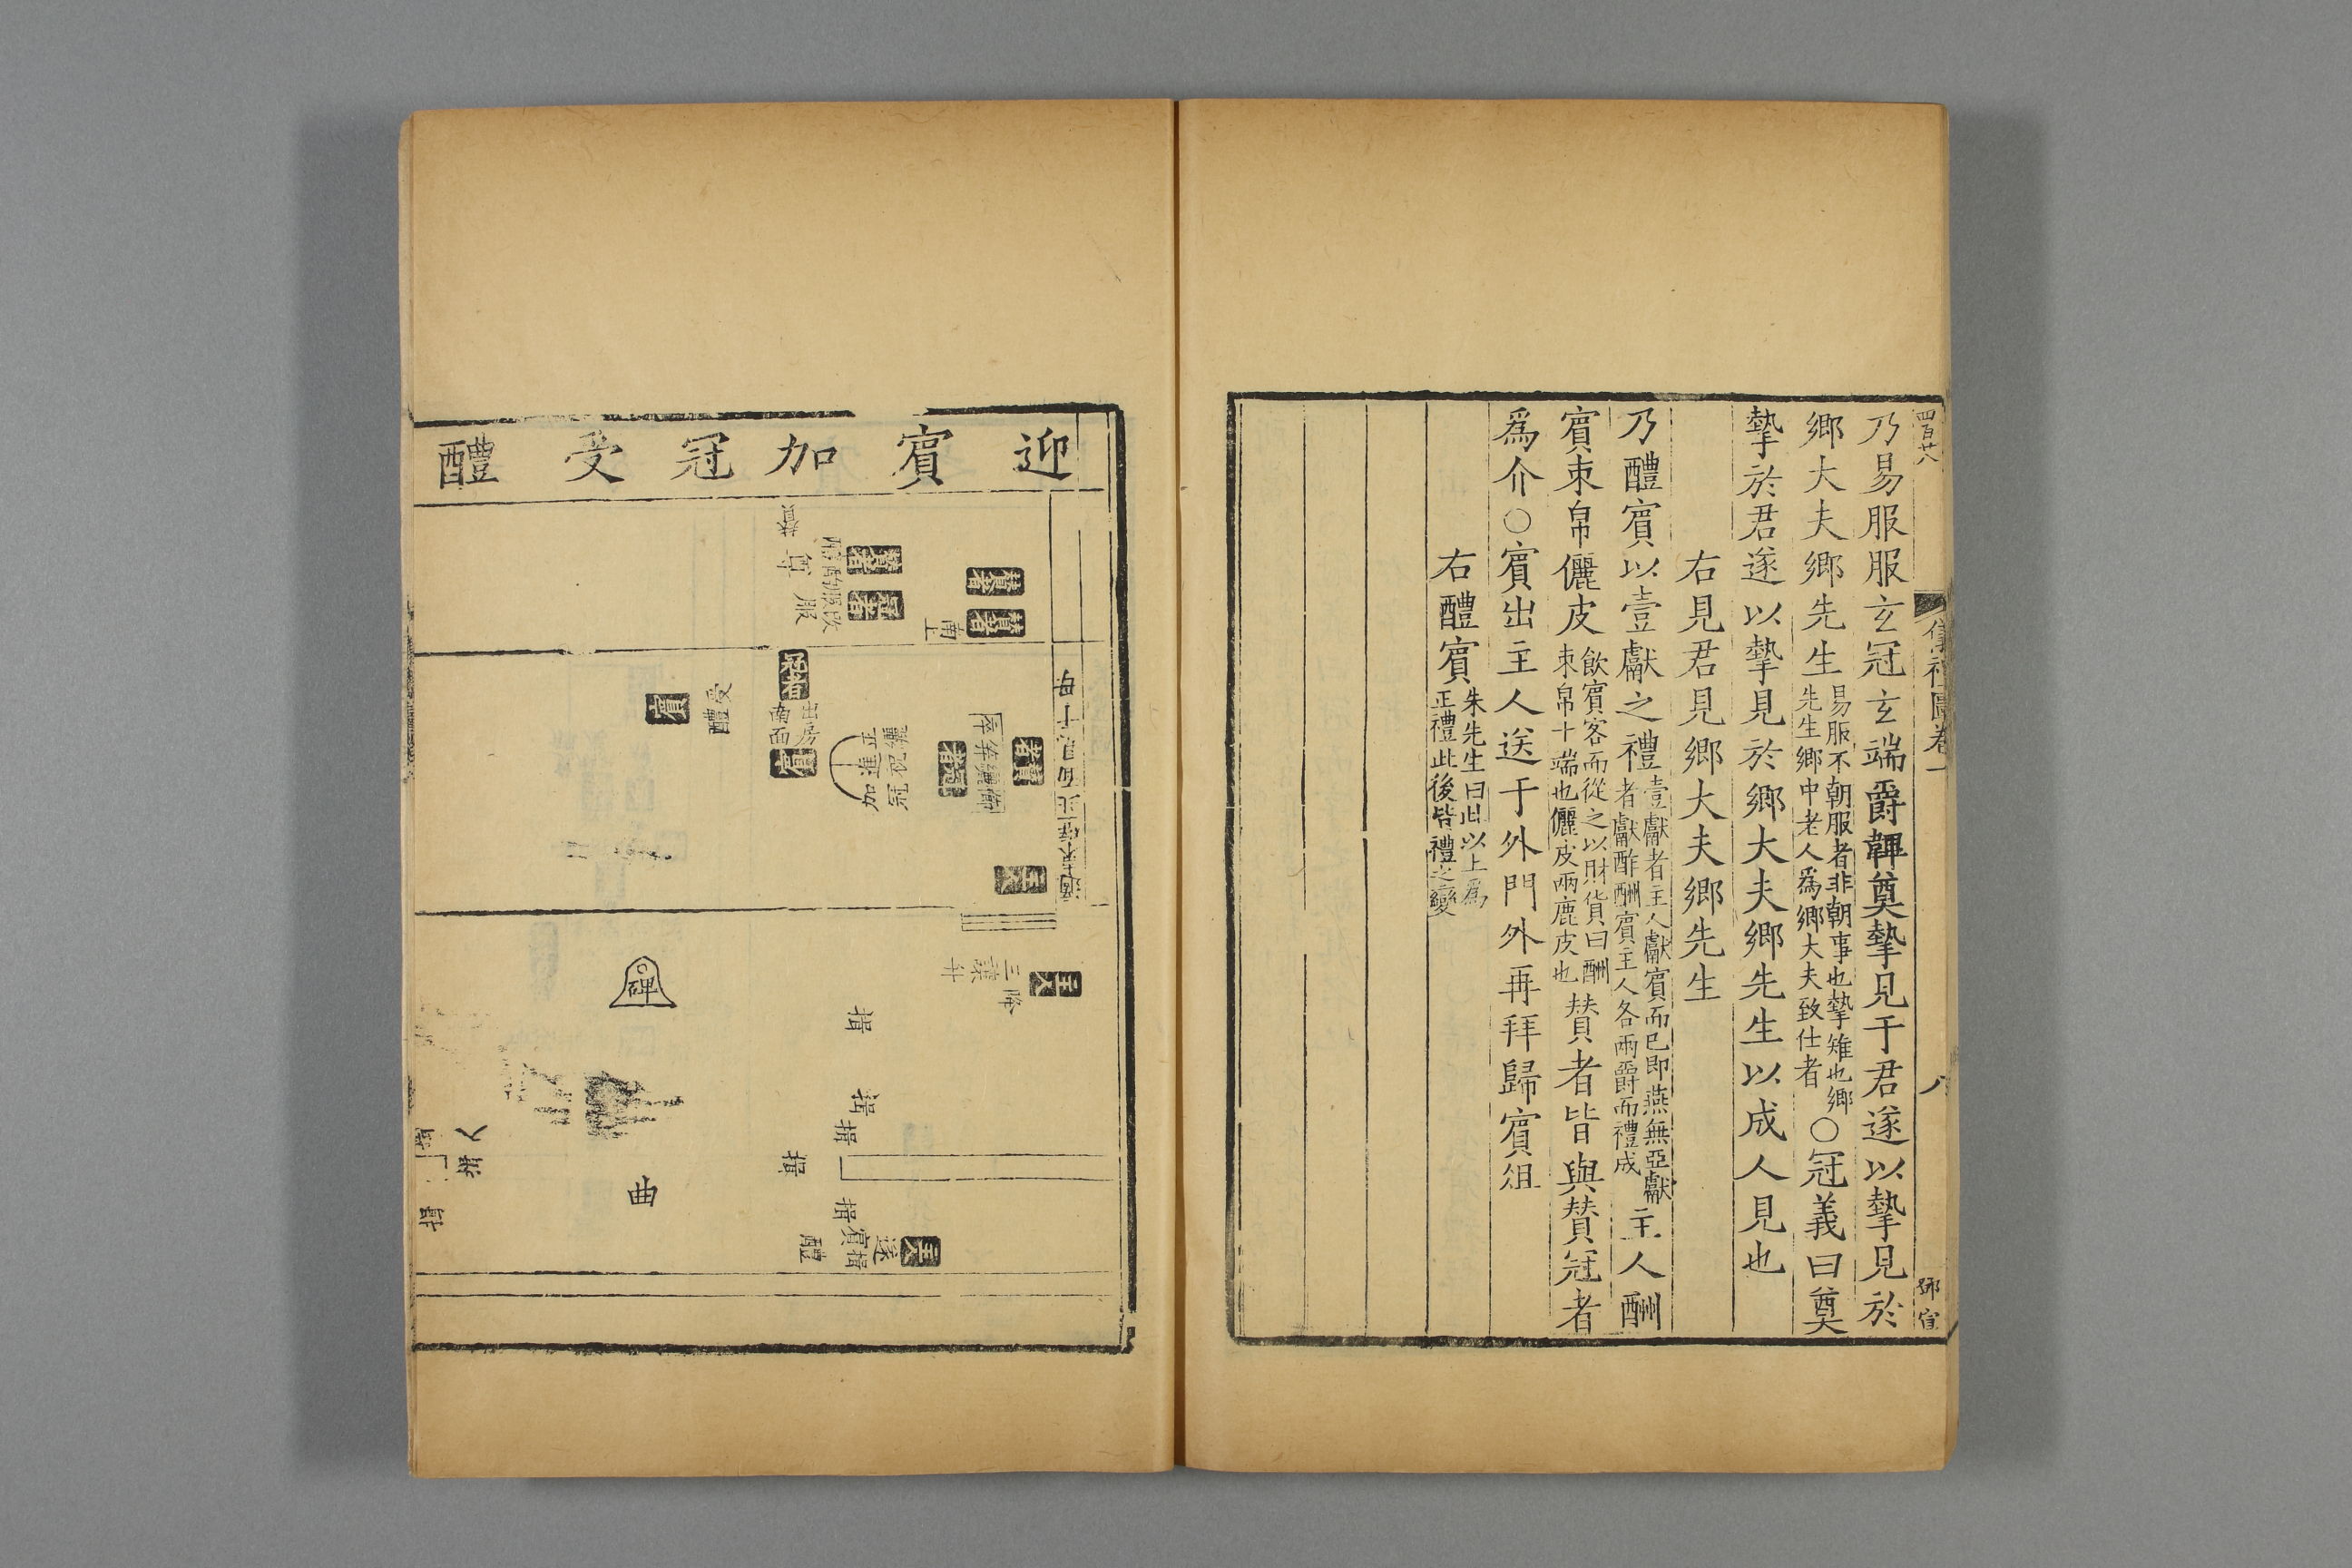 四百廿八
儀禮圖卷一
八
鄧宿
乃易服服玄冠玄端爵韠奠摯見于君遂以摯見於
鄉大夫鄉先生易服不朝服者非朝事也摯雉也鄉先生鄉中老人為鄉大夫致仕者○冠義曰奠
摯於君遂以摯見於鄉大夫鄉先生以成人見也
右見君見鄉大夫鄉先生
乃醴賓以壹獻之禮壹獻者主人獻賓而已即燕無亞獻者獻酢酬賓主人各兩爵而禮成主人酬
賓束帛儷皮飲賓客而從之以財貨曰酬束帛十端也儷皮兩鹿皮也賛者皆與賛冠者
為介○賓出主人送于外門外再拜歸賓俎
右醴賓朱先生曰此以上為正禮此後皆禮之變
迎賓加冠受醴
適東壁北面見于母
賛者
賛者
南上
賛者
冠者
尊
服
賓
受醴
冠者
出房南面
賓
纚祝正進冠加
主人
主人
降
三讓升
碑
揖
揖
揖
揖
揖
曲
主人
遂揖賓醴